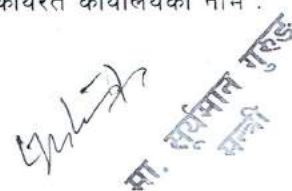 कार्यरत कार्यालयको नाम :
मा. सूर्यमान गुरुङ
मन्त्री